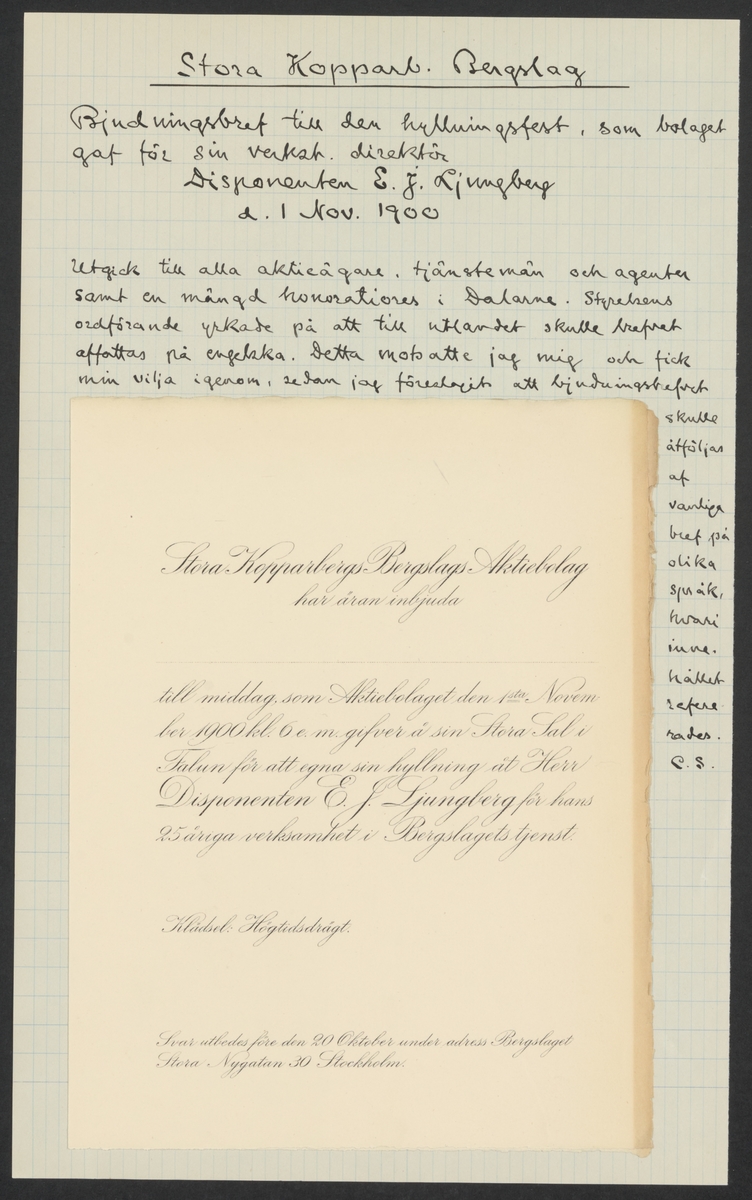 Stora Kopparb. Bergslag
Bjudningsbref till den hyllningsfest, som bolaget
gaf för sin verkst. direktör
Disponenten E. J. Ljungberg
d. 1 Nov. 1900
Utgick till alla aktieägare, tjänstemän och agenter
samt en mängd honoratiores i Dalarne. Styrelsens
ordförande yrkade på att till utlandet skulle brefvet
affattas på engelska. Detta motsatte jag mig och fick
min vilja igenom, sedan jag föreslagit att bjudningsbrefvet
skulle
åtföljas
af
vanliga
bref på
olika
språk,
hvari
inne-
hållet
refere-
rades.
C. S.
Stora Kopparbergs Bergslags Aktiebolag
har äran inbjuda
till middag, som Aktiebolaget den 1sta Novem
ber 1900 kl. 6 e. m. gifver å sin Stora Sal i
Falun för att egna sin hyllning åt Herr
Disponenten E. J. Ljungberg för hans
25åriga verksamhet i Bergslagets tjenst.
Klädsel: Högtidsdrägt.
Svar utbedes före den 20 Oktober under adress Bergslaget
Stora Nygatan 30 Stockholm.